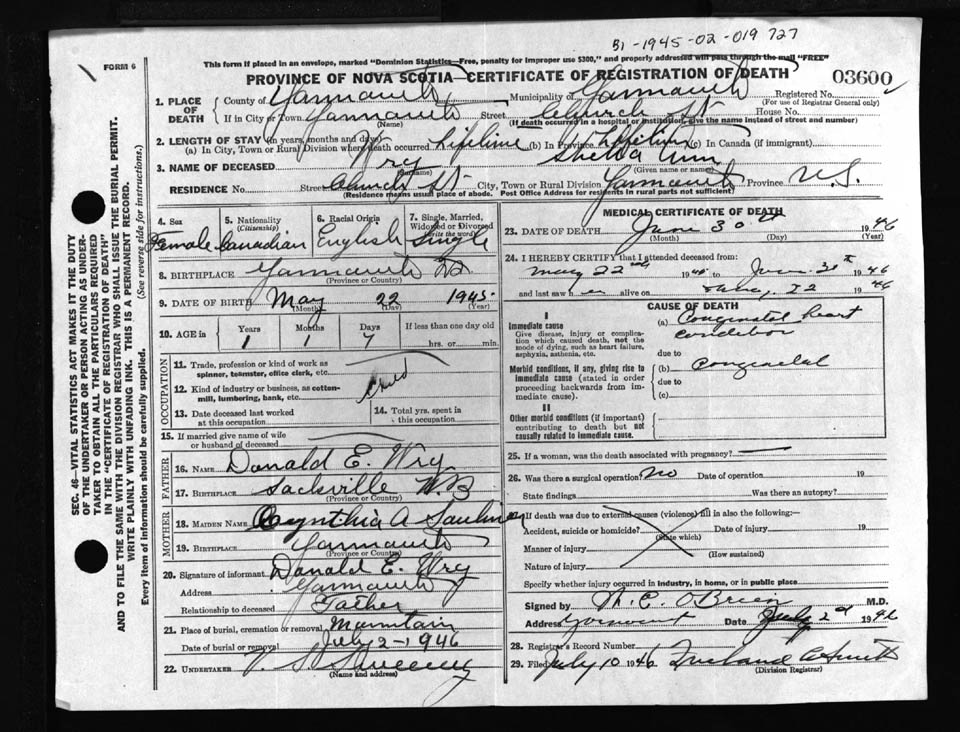 B1-1945-02-019 727
FORM 6
This form if placed in an envelope, marked "Dominion Statistics—Free, penalty for improper use $300," and properly addressed will pass through the mail "FREE"
PROVINCE OF NOVA SCOTIA—CERTIFICATE OF REGISTRATION OF DEATH
03600
1. PLACE OF DEATH
County of Yarmouth Municipality of Yarmouth Registered No.
(For use of Registrar General only)
If in City or Town Yarmouth Street Church St House No.
(Name) (If death occurred in a hospital or institution, give the name instead of street and number)
2. LENGTH OF STAY (in years, months and days)
(a) In City, Town or Rural Division where death occurred Lifetime (b) In Province Lifetime (c) In Canada (if immigrant)
3. NAME OF DECEASED Wry Ann
(Surname) (Given name or names)
RESIDENCE No. Street Church St City, Town or Rural Division Yarmouth Province N.S.
(Residence means usual place of abode. Post Office Address for residents in rural parts not sufficient)
4. Sex Female
5. Nationality (Citizenship) Canadian
6. Racial Origin English
7. Single, Married, Widowed or Divorced (Write the word) Single
8. BIRTHPLACE Yarmouth NS
(Province or Country)
9. DATE OF BIRTH May 22 1945
(Month) (Day) (Year)
10. AGE in Years Months Days If less than one day old
1 1 7 hrs. or min.
OCCUPATION
11. Trade, profession or kind of work as spinner, teamster, office clerk, etc.
12. Kind of industry or business, as cotton-mill, lumbering, bank, etc.
Child
13. Date deceased last worked at this occupation
14. Total yrs. spent in this occupation
15. If married give name of wife or husband of deceased
FATHER
16. NAME Donald E. Wry
17. BIRTHPLACE Sackville N.B
(Province or Country)
MOTHER
18. MAIDEN NAME Cynthia A
19. BIRTHPLACE Yarmouth
(Province or Country)
20. Signature of informant Donald E. Wry
Address Yarmouth
Relationship to deceased Father
21. Place of burial, cremation or removal Mountain
Date of burial or removal July 2-1946
22. UNDERTAKER V. S. Sweeney
(Name and address)
MEDICAL CERTIFICATE OF DEATH
23. DATE OF DEATH June 30th 1946
(Month) (Day) (Year)
24. I HEREBY CERTIFY that I attended deceased from:
May 22nd 194 to June 30th 1946
and last saw her alive on 1946
CAUSE OF DEATH
I
Immediate cause
Give disease, injury or complication which caused death, not the mode of dying, such as heart failure, asphyxia, asthenia, etc.
(a) Congenital heart
condition
due to
Morbid conditions, if any, giving rise to immediate cause (stated in order proceeding backwards from immediate cause).
(b) Congenital
due to
(c)
II
Other morbid conditions (if important) contributing to death but not causally related to immediate cause.
25. If a woman, was the death associated with pregnancy?
26. Was there a surgical operation? No Date of operation 19
State findings Was there an autopsy?
27. If death was due to external causes (violence) fill in also the following:—
Accident, suicide or homicide? Date of injury 19
(State which)
Manner of injury
(How sustained)
Nature of injury
Specify whether injury occurred in industry, in home, or in public place
Signed by M.C. O'Brien M.D.
Address Yarmouth Date July 2nd 1946
28. Registrar's Record Number
29. Filed July 10 1946 Smith
(Division Registrar)
SEC. 46—VITAL STATISTICS ACT MAKES IT THE DUTY
OF THE UNDERTAKER OR PERSON ACTING AS UNDER-
TAKER TO OBTAIN ALL THE PARTICULARS REQUIRED
IN THE "CERTIFICATE OF REGISTRATION OF DEATH"
AND TO FILE THE SAME WITH THE DIVISION REGISTRAR WHO SHALL ISSUE THE BURIAL PERMIT.
WRITE PLAINLY WITH UNFADING INK. THIS IS A PERMANENT RECORD.
Every item of information should be carefully supplied. (See reverse side for instructions.)